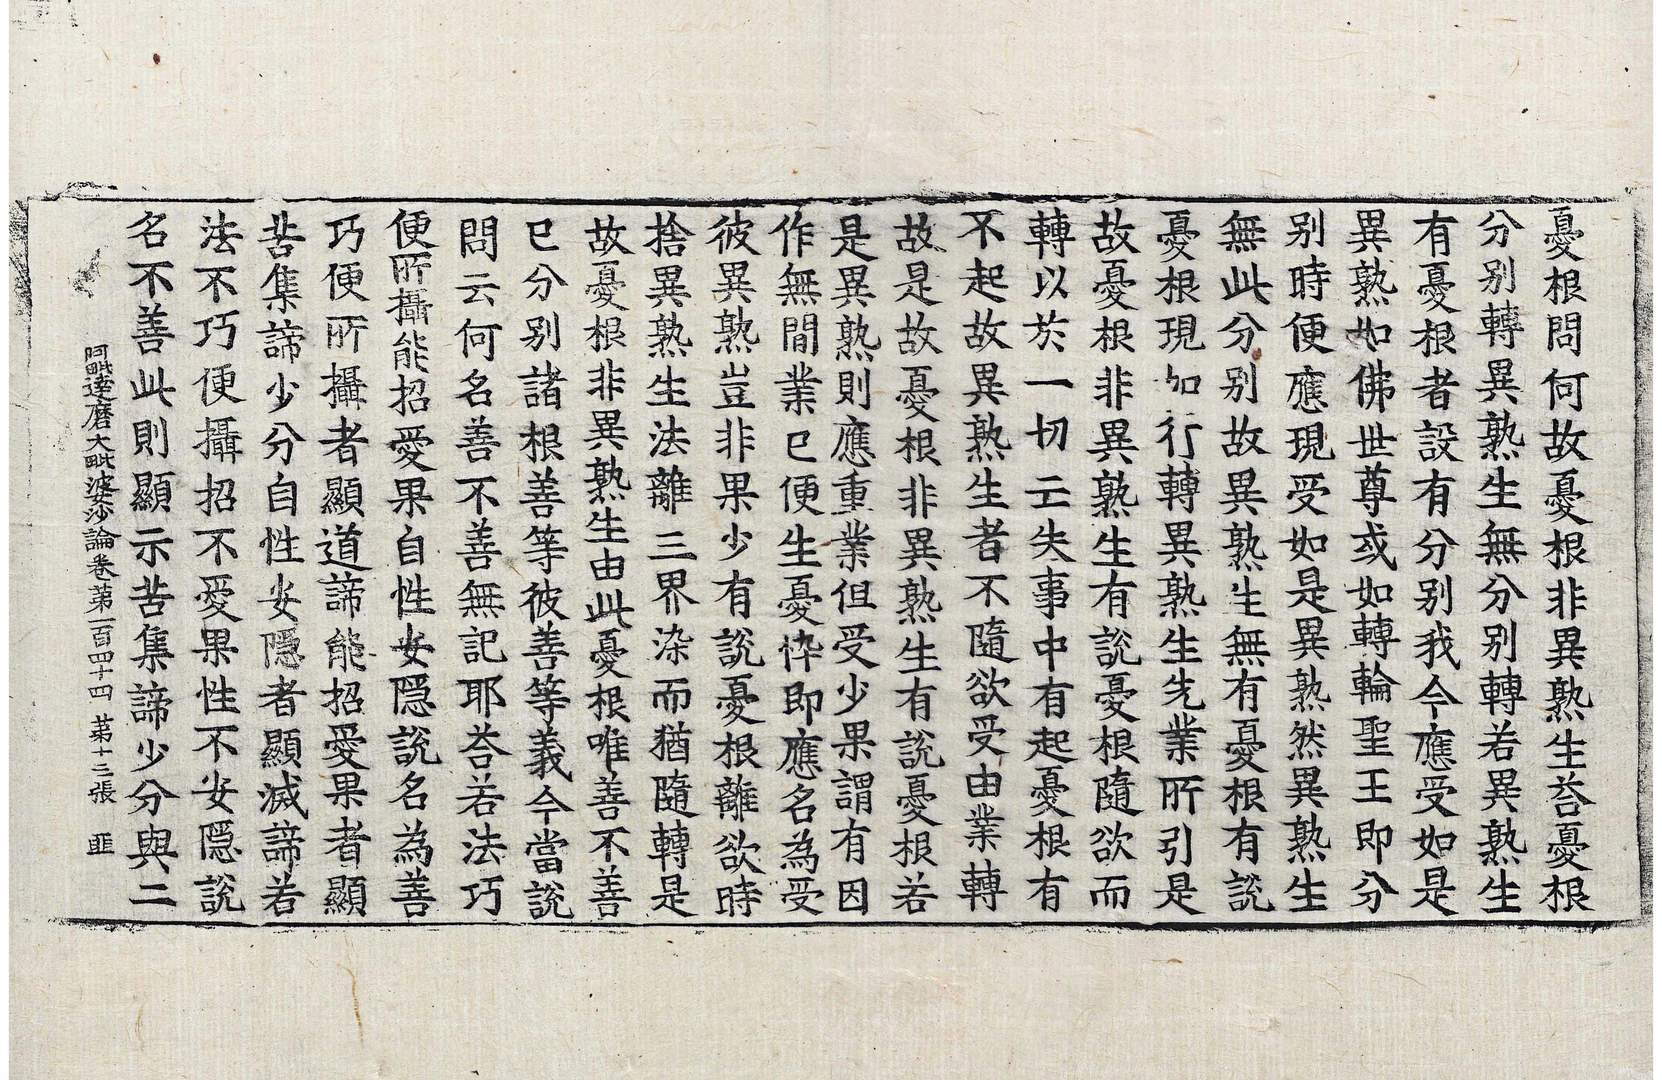 憂根問何故憂根非異熟生荅憂根
分别轉異熟生無分别轉若異熟生
有憂根者設有分别我今應受如是
異熟如佛世尊或如轉輪聖王即分
别時便應現受如是異熟然異熟生
無此分别故異熟生無有憂根有說
憂根現加行轉異熟生先業所引是
故憂根非異熟生有說憂根隨欲而
轉以於一切亡失事中有起憂根有
不起故異熟生者不隨欲受由業轉
故是故憂根非異熟生有說憂根若
是異熟則應重業但受少果謂有因
作無間業已便生憂悴即應名為受
彼異熟豈非果少有說憂根離欲時
捨異熟生法離三界染而猶隨轉是
故憂根非異熟生由此憂根唯善不善
已分别諸根善等彼善等義今當說
問云何名善不善無記耶荅若法巧
便所攝能招愛果自性安隱說名為善
巧便所攝者顯道諦能招愛果者顯
苦集諦少分自性安隱者顯滅諦若
法不巧便攝招不愛果性不安隱說
名不善此則顯示苦集諦少分與二
阿毗達磨大毗婆沙論卷第一百四十四 第十三張 匪